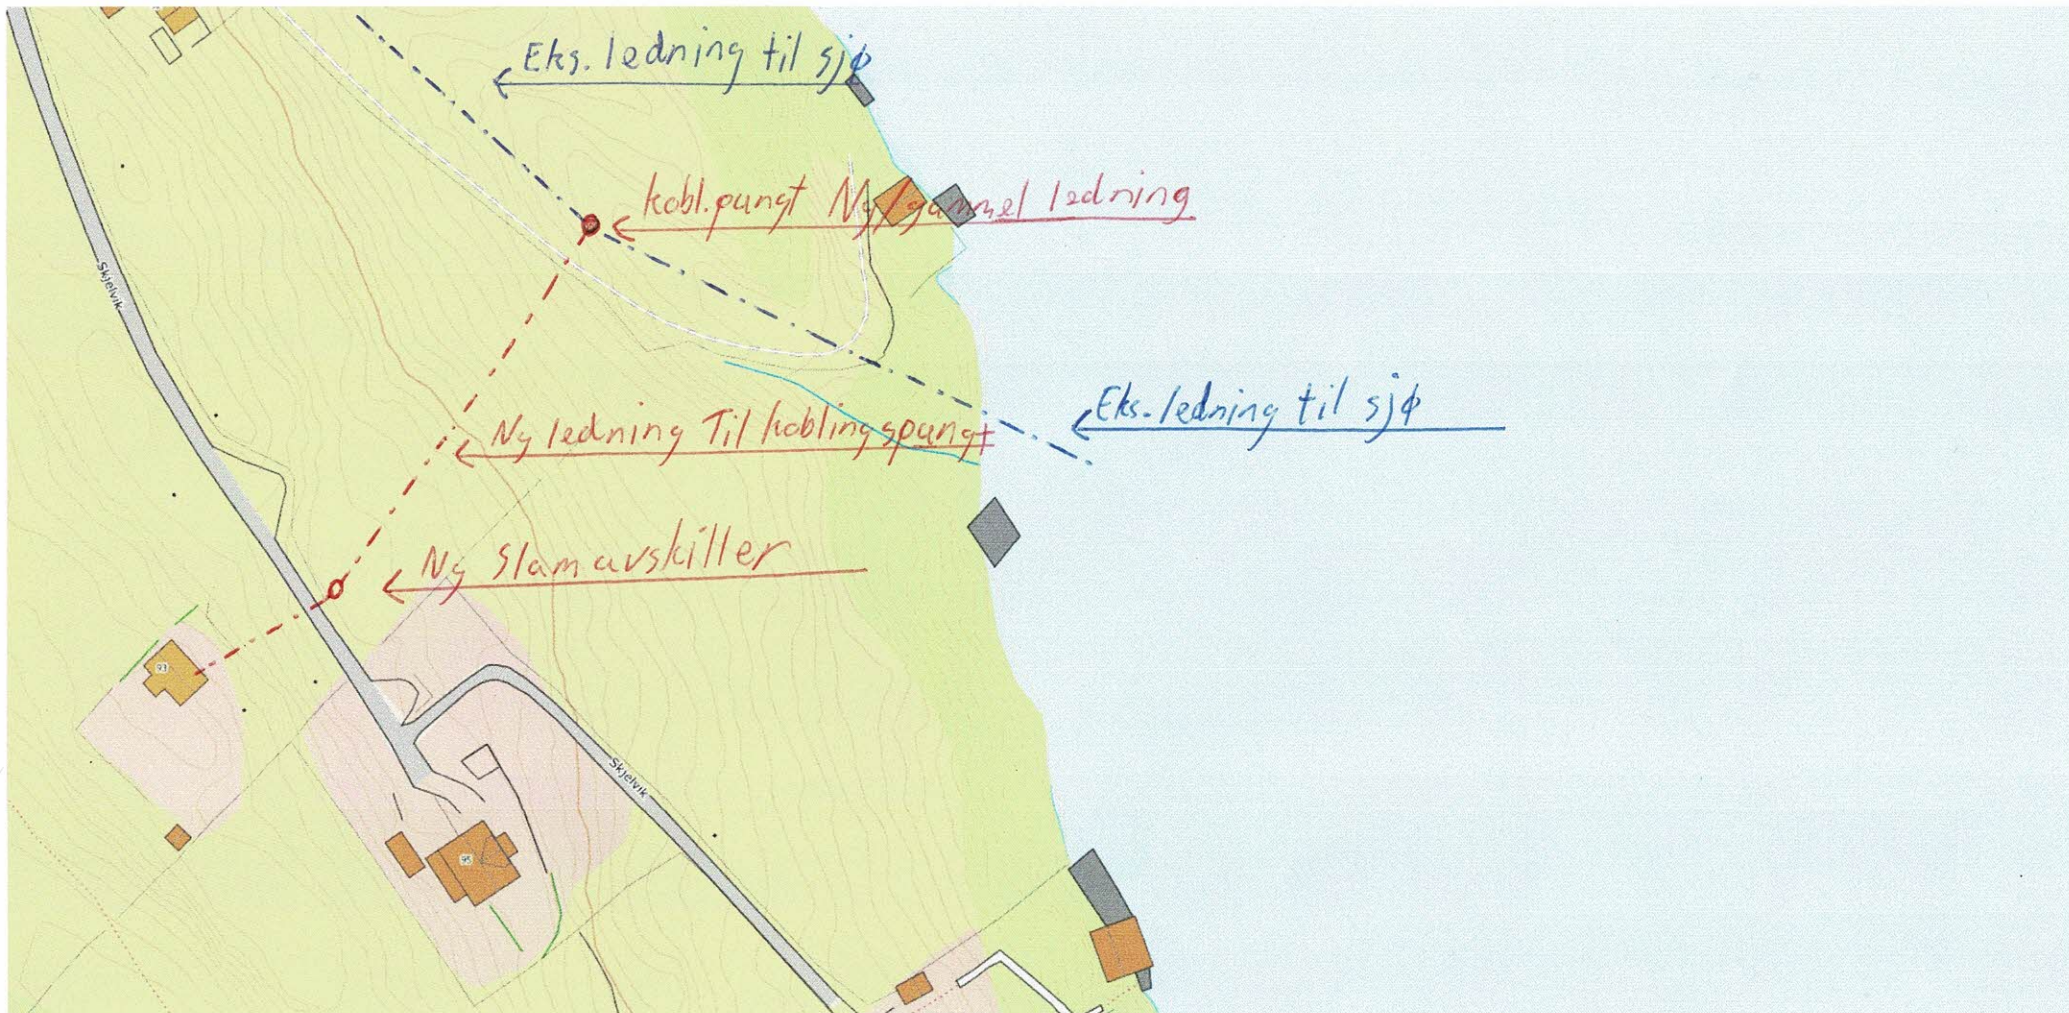 Eks. ledning til sjø
kobl.pungt Ny/gammel ledning
Skjelvik
Eks. ledning til sjø
Ny ledning Til koblingspungt
Ny Slamavskiller
93
Skjelvik
95